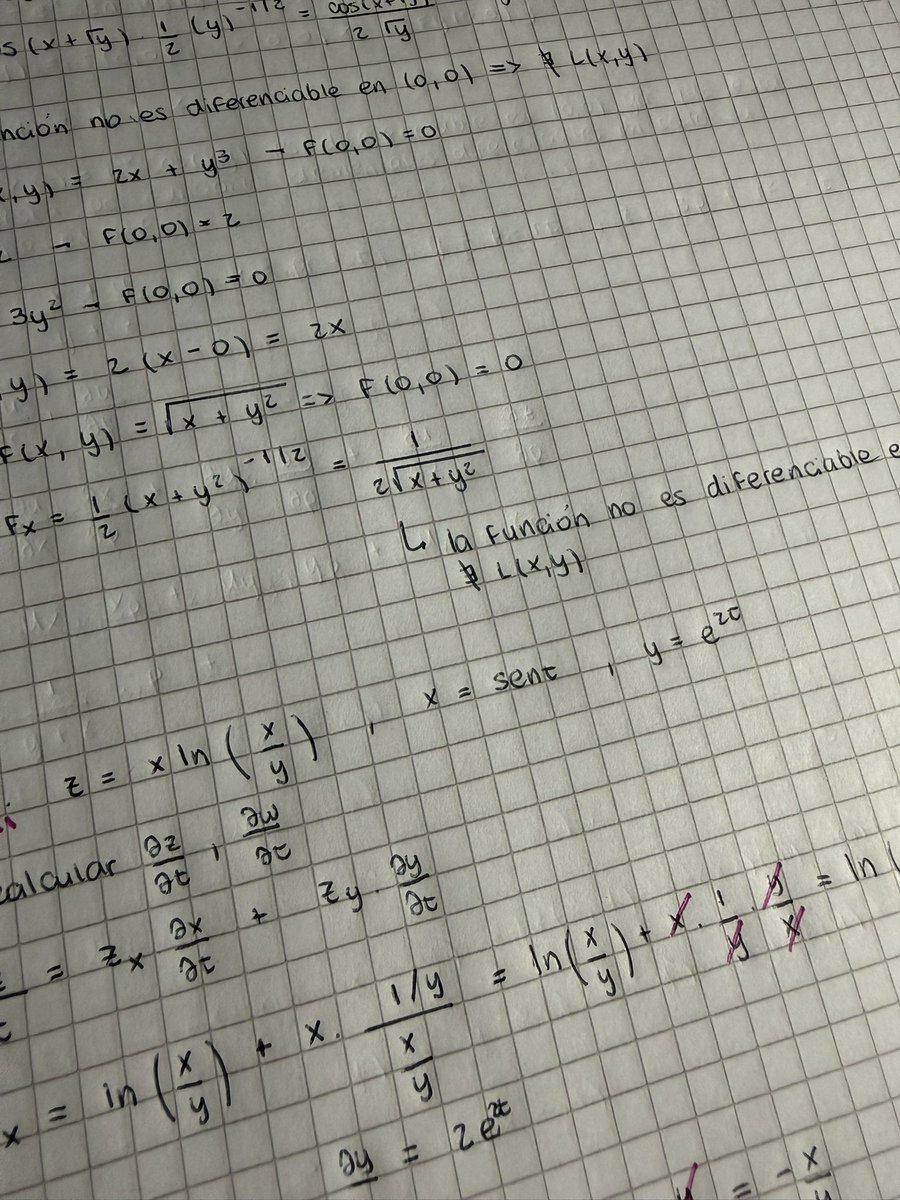 s(x+√y) · 1/2 (y)^-1/2 = cos(x+√y) / 2√y
nción no es diferenciable en (0,0) => ∄ L(x,y)
x,y) = 2x + y³ → F(0,0) = 0
2 → F(0,0) = 2
3y² → F(0,0) = 0
y) = 2(x-0) = 2x
F(x,y) = √(x + y²) => F(0,0) = 0
Fx = 1/2 (x+y²)^-1/2 = 1 / 2√(x+y²)
↳ la función no es diferenciable e
∄ L(x,y)
z = x ln(x/y) , x = sent , y = e^2t
calcular ∂z/∂t , ∂w/∂t
= zx ∂x/∂t + zy · ∂y/∂t
x = ln(x/y) + x · (1/y)/(x/y) = ln(x/y) + x · 1/y · y/x = ln(
∂y = 2e^2t
= -x